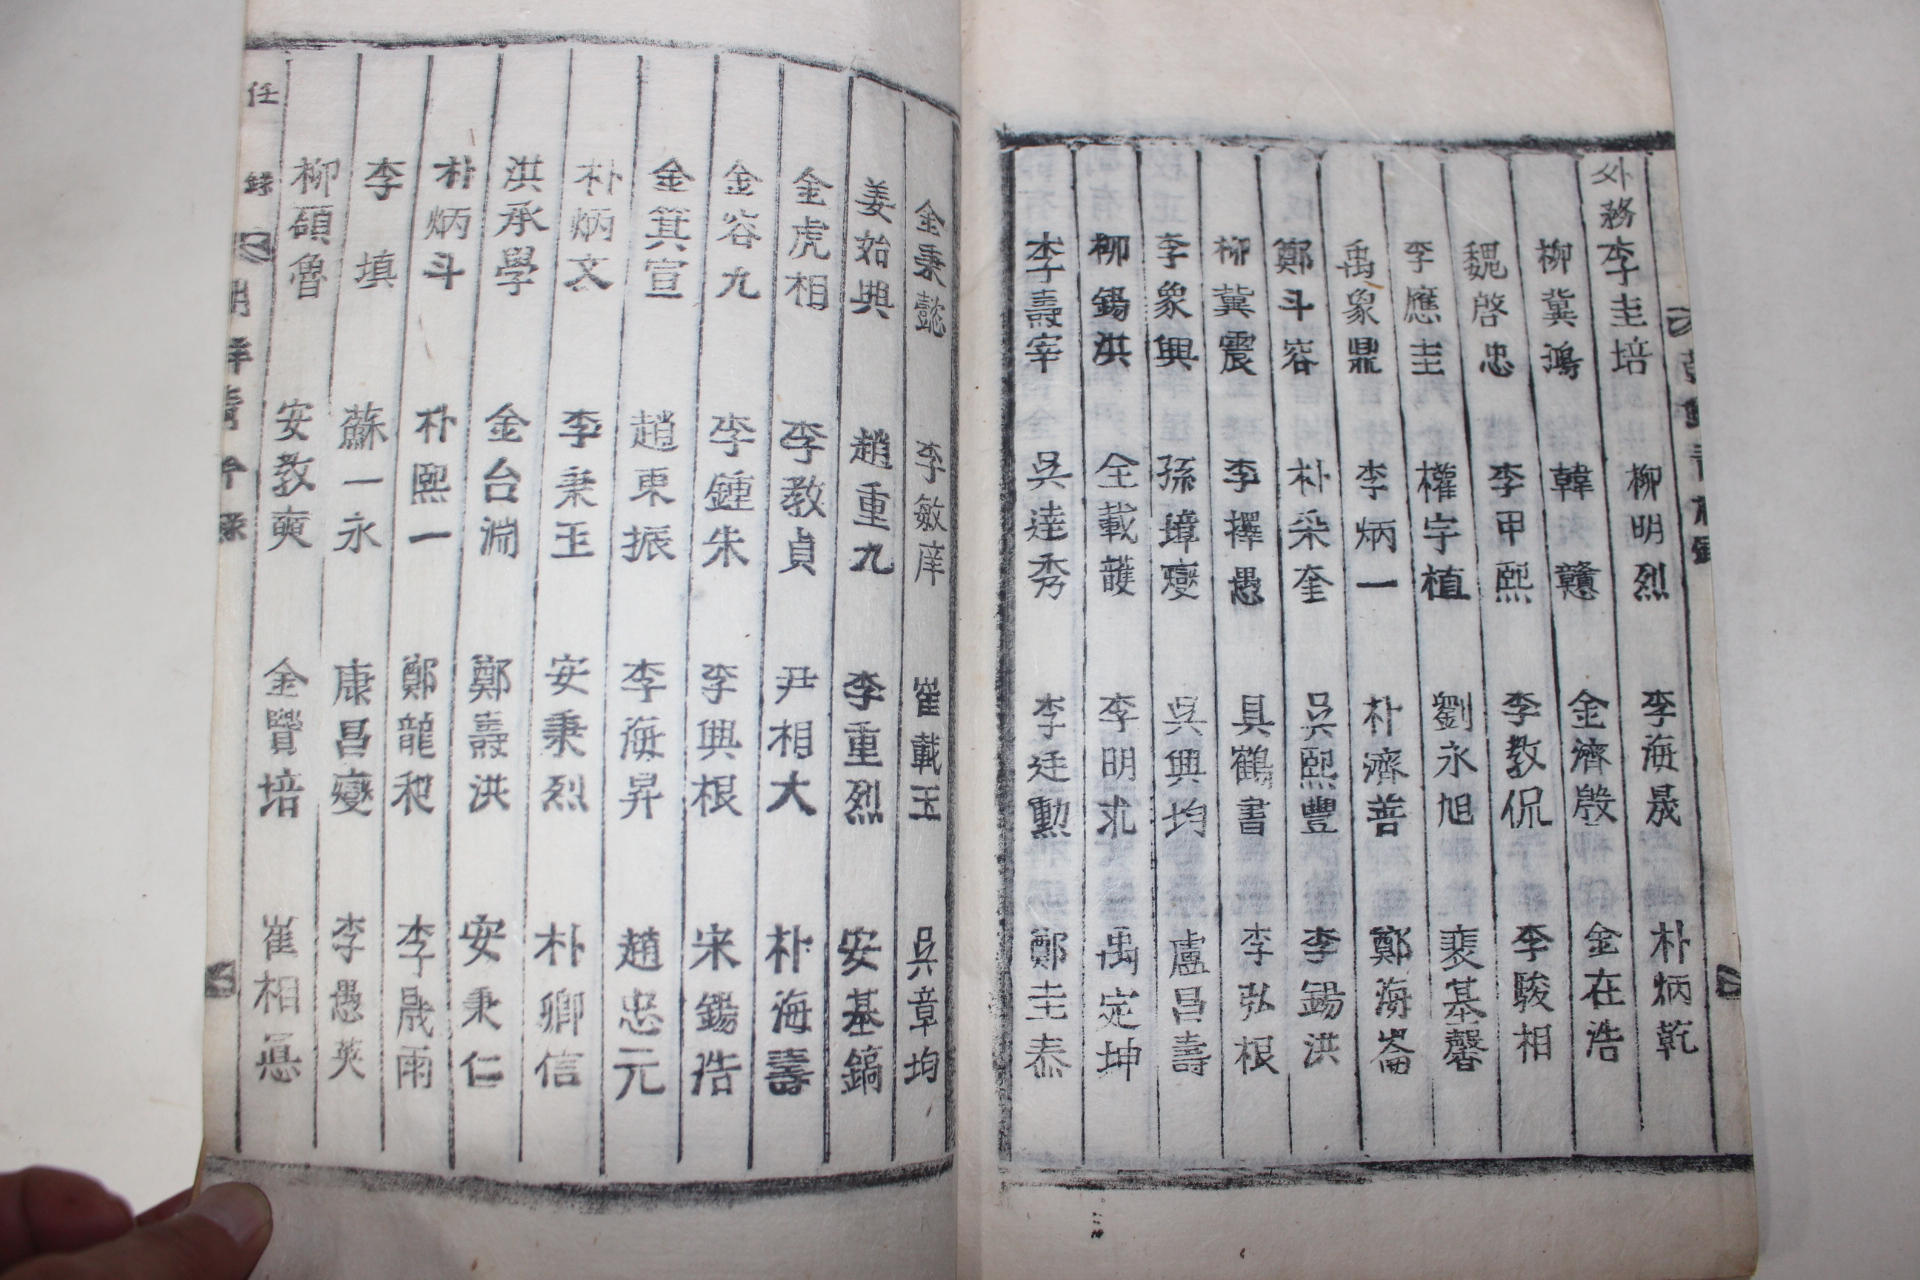 外務李圭培 柳明烈 李海晟 朴炳乾
柳冀鴻 韓 戇 金濟殷 金在浩
魏啓忠 李甲熙 李教侃 李駿相
李應圭 權宇植 劉永旭 裵基馨
禹象鼎 李炳一 朴濟善 鄭海崙
鄭斗容 朴采奎 吳熙豐 李錫洪
柳冀震 李擇愚 具鶴書 李弘根
李象興 孫璋燮 吳興均 盧昌壽
柳錫洪 全載頀 李明求 禹定坤
李壽宰 吳達秀 李廷勳 鄭圭泰
金秉懿 李敏庠 崔載玉 吳章均
姜始興 趙重九 李重烈 安基鎬
金虎相 李教貞 尹相大 朴海壽
金容九 李鍾朱 李興根 宋錫浩
金箕宣 趙東振 李海昇 趙忠元
朴炳文 李秉玉 安秉烈 朴卿信
洪承學 金台淵 鄭壽洪 安秉仁
朴炳斗 朴熙一 鄭龍和 李晟雨
李 塡 蘇一永 康昌燮 李愚英
柳碩魯 安教奭 金贊培 崔相悳
任 錄